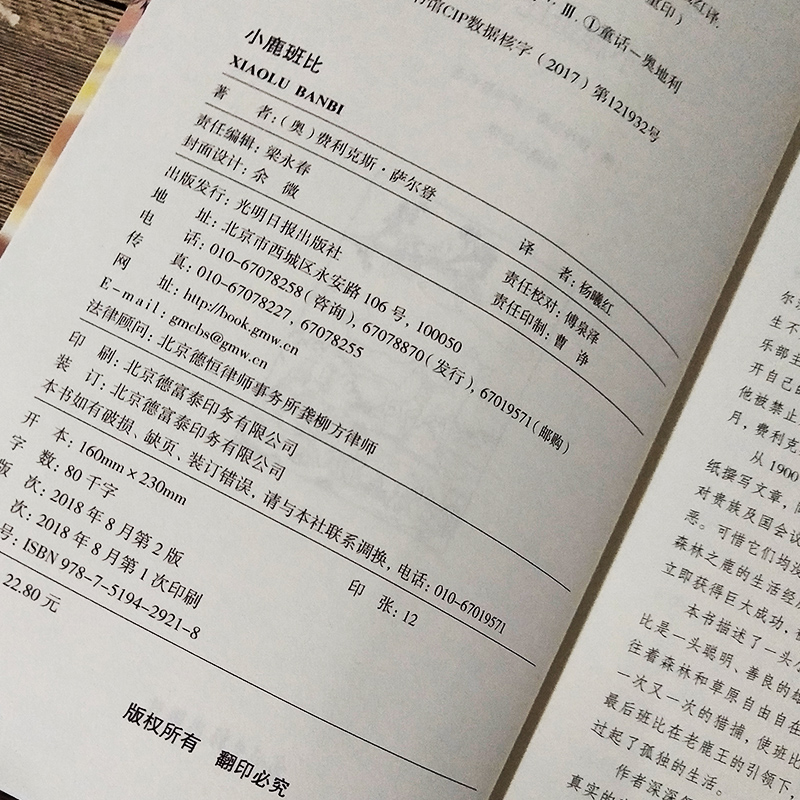 红译.
Ⅲ. ①童话－奥地利
馆CIP数据核字（2017）第121932号
小鹿班比
XIAOLU BANBI
著 者：（奥）费利克斯·萨尔登
译 者：杨曦红
责任编辑：梁永春
责任校对：傅泉泽
封面设计：余 微
责任印制：曹 诤
出版发行：光明日报出版社
地 址：北京市西城区永安路 106 号，100050
电 话：010-67078258（咨询），67078870（发行），67019571（邮购）
传 真：010-67078227，67078255
网 址：http://book.gmw.cn
E-mail：gmcbs@gmw.cn
法律顾问：北京德恒律师事务所龚柳方律师
印 刷：北京德富泰印务有限公司
装 订：北京德富泰印务有限公司
本书如有破损、缺页、装订错误，请与本社联系调换，电话：010-67019571
开 本：160mm×230mm
字 数：80 千字
印 张：12
版 次：2018 年 8 月第 2 版
次：2018 年 8 月第 1 次印刷
号：ISBN 978-7-5194-2921-8
22.80 元
版权所有 翻印必究
生不
乐部主
开自己的
他被禁止
月，费利克
从 1900
纸撰写文章，
对贵族及国会议
恶。可惜它们均没
森林之鹿的生活经
立即获得巨大成功，
本书描述了一头小
比是一头聪明、善良的
往着森林和草原自由自在
一次又一次的猎捕，使班比
最后班比在老鹿王的引领下，
过起了孤独的生活。
作者深深
真实的